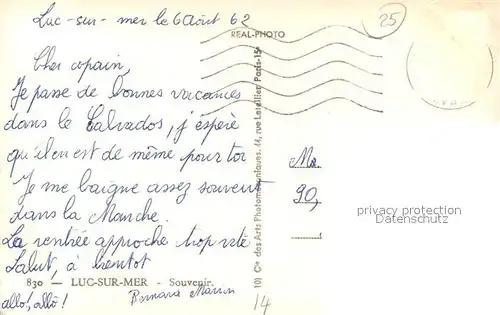 Luc-sur-mer le 6 Août 62
25
REAL-PHOTO
Cher copain,
Je passe de bonnes vacances
dans le Calvados, j'éspère
qu'il en est de même pour toi
Je me baigne assez souvent
dans la Manche.
La rentrée approche trop vite
Salut, à bientot
830 — LUC-SUR-MER - Souvenir.
allo! allô!
Bernard
14
10) Cie des Arts Photomécaniques, 44, rue Letellier, Paris-15e
Mr
90,
privacy protection
Datenschutz